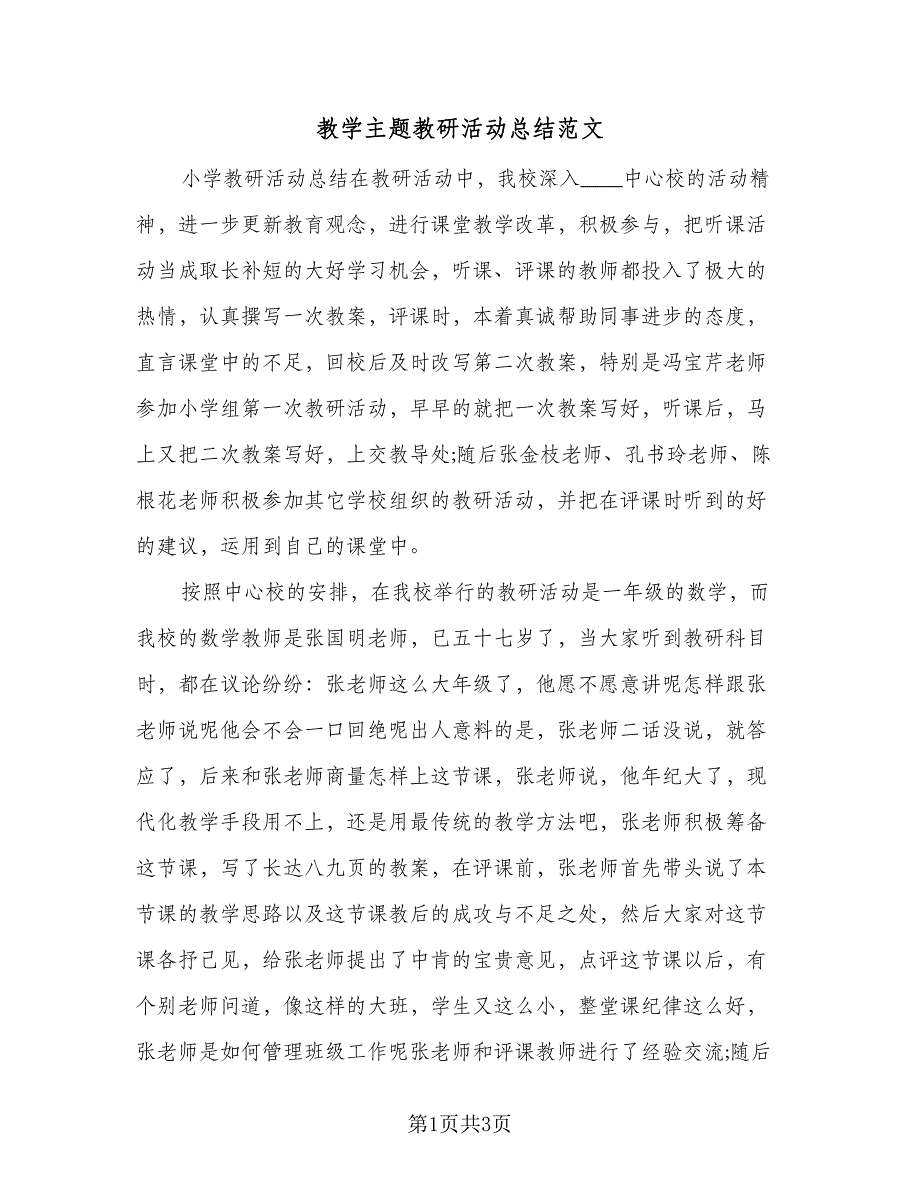 教学主题教研活动总结范文
小学教研活动总结在教研活动中，我校深入____中心校的活动精
神，进一步更新教育观念，进行课堂教学改革，积极参与，把听课活
动当成取长补短的大好学习机会，听课、评课的教师都投入了极大的
热情，认真撰写一次教案，评课时，本着真诚帮助同事进步的态度，
直言课堂中的不足，回校后及时改写第二次教案，特别是冯宝芹老师
参加小学组第一次教研活动，早早的就把一次教案写好，听课后，马
上又把二次教案写好，上交教导处;随后张金枝老师、孔书玲老师、陈
根花老师积极参加其它学校组织的教研活动，并把在评课时听到的好
的建议，运用到自己的课堂中。
按照中心校的安排，在我校举行的教研活动是一年级的数学，而
我校的数学教师是张国明老师，已五十七岁了，当大家听到教研科目
时，都在议论纷纷：张老师这么大年级了，他愿不愿意讲呢怎样跟张
老师说呢他会不会一口回绝呢出人意料的是，张老师二话没说，就答
应了，后来和张老师商量怎样上这节课，张老师说，他年纪大了，现
代化教学手段用不上，还是用最传统的教学方法吧，张老师积极筹备
这节课，写了长达八九页的教案，在评课前，张老师首先带头说了本
节课的教学思路以及这节课教后的成攻与不足之处，然后大家对这节
课各抒己见，给张老师提出了中肯的宝贵意见，点评这节课以后，有
个别老师问道，像这样的大班，学生又这么小，整堂课纪律这么好，
张老师是如何管理班级工作呢张老师和评课教师进行了经验交流;随后
第1页共3页